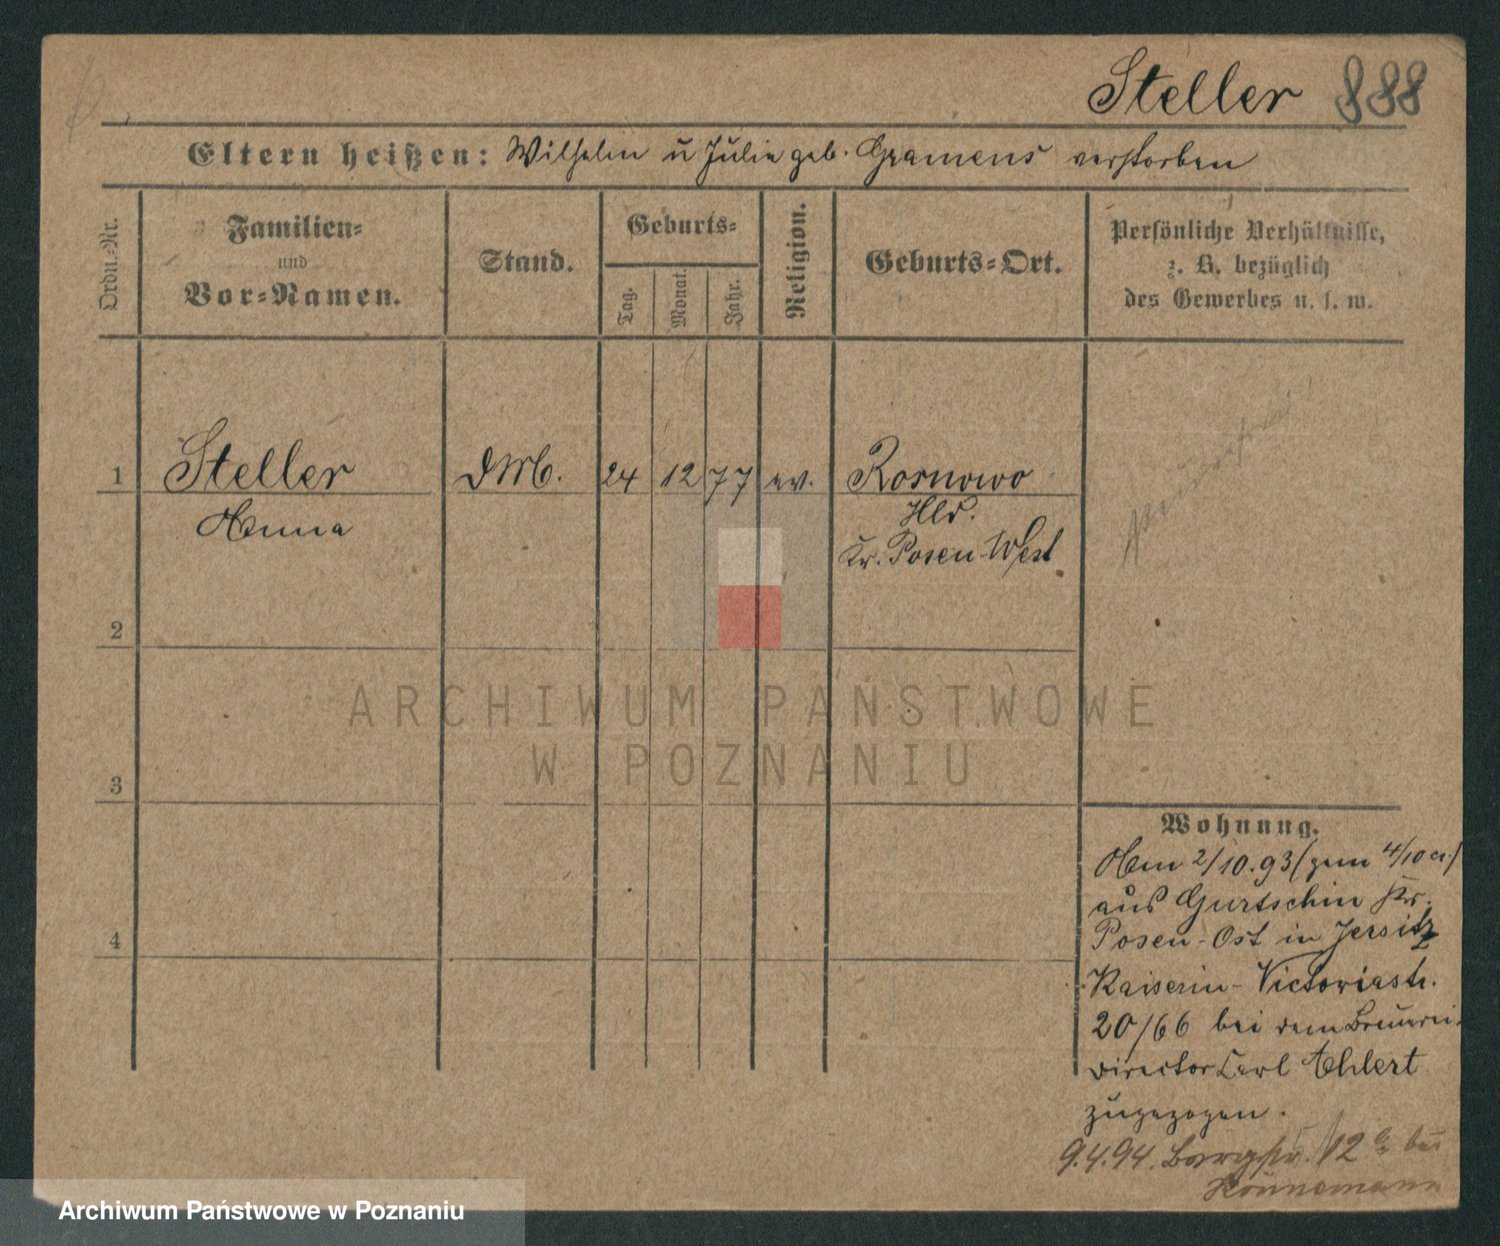 Steller 888
Eltern heißen: Wilhelm u Julie geb. Gramens verstorben
Ordn.-Nr.
Familien-
und
Vor-Namen.
Stand.
Geburts-
Tag.
Monat.
Jahr.
Religion.
Geburts-Ort.
Persönliche Verhältnisse,
z. B. bezüglich
des Gewerbes u. s. w.
1 Steller DM. 24 12 77 ev. Rosnowo
Anna Hld.
Kr. Posen-West
2
3
4
ARCHIWUM PAŃSTWOWE
W POZNANIU
Wohnung.
Am 2/10.93 (zum 4/10 cr.)
aus Gurtschin Kr.
Posen-Ost in Jersitz
Kaiserin-Victoriastr.
20/66 bei dem Brauerei-
director Carl Ahlert
zugezogen.
9.4.94. Bergstr. 12 bei
Könnemann
Archiwum Państwowe w Poznaniu